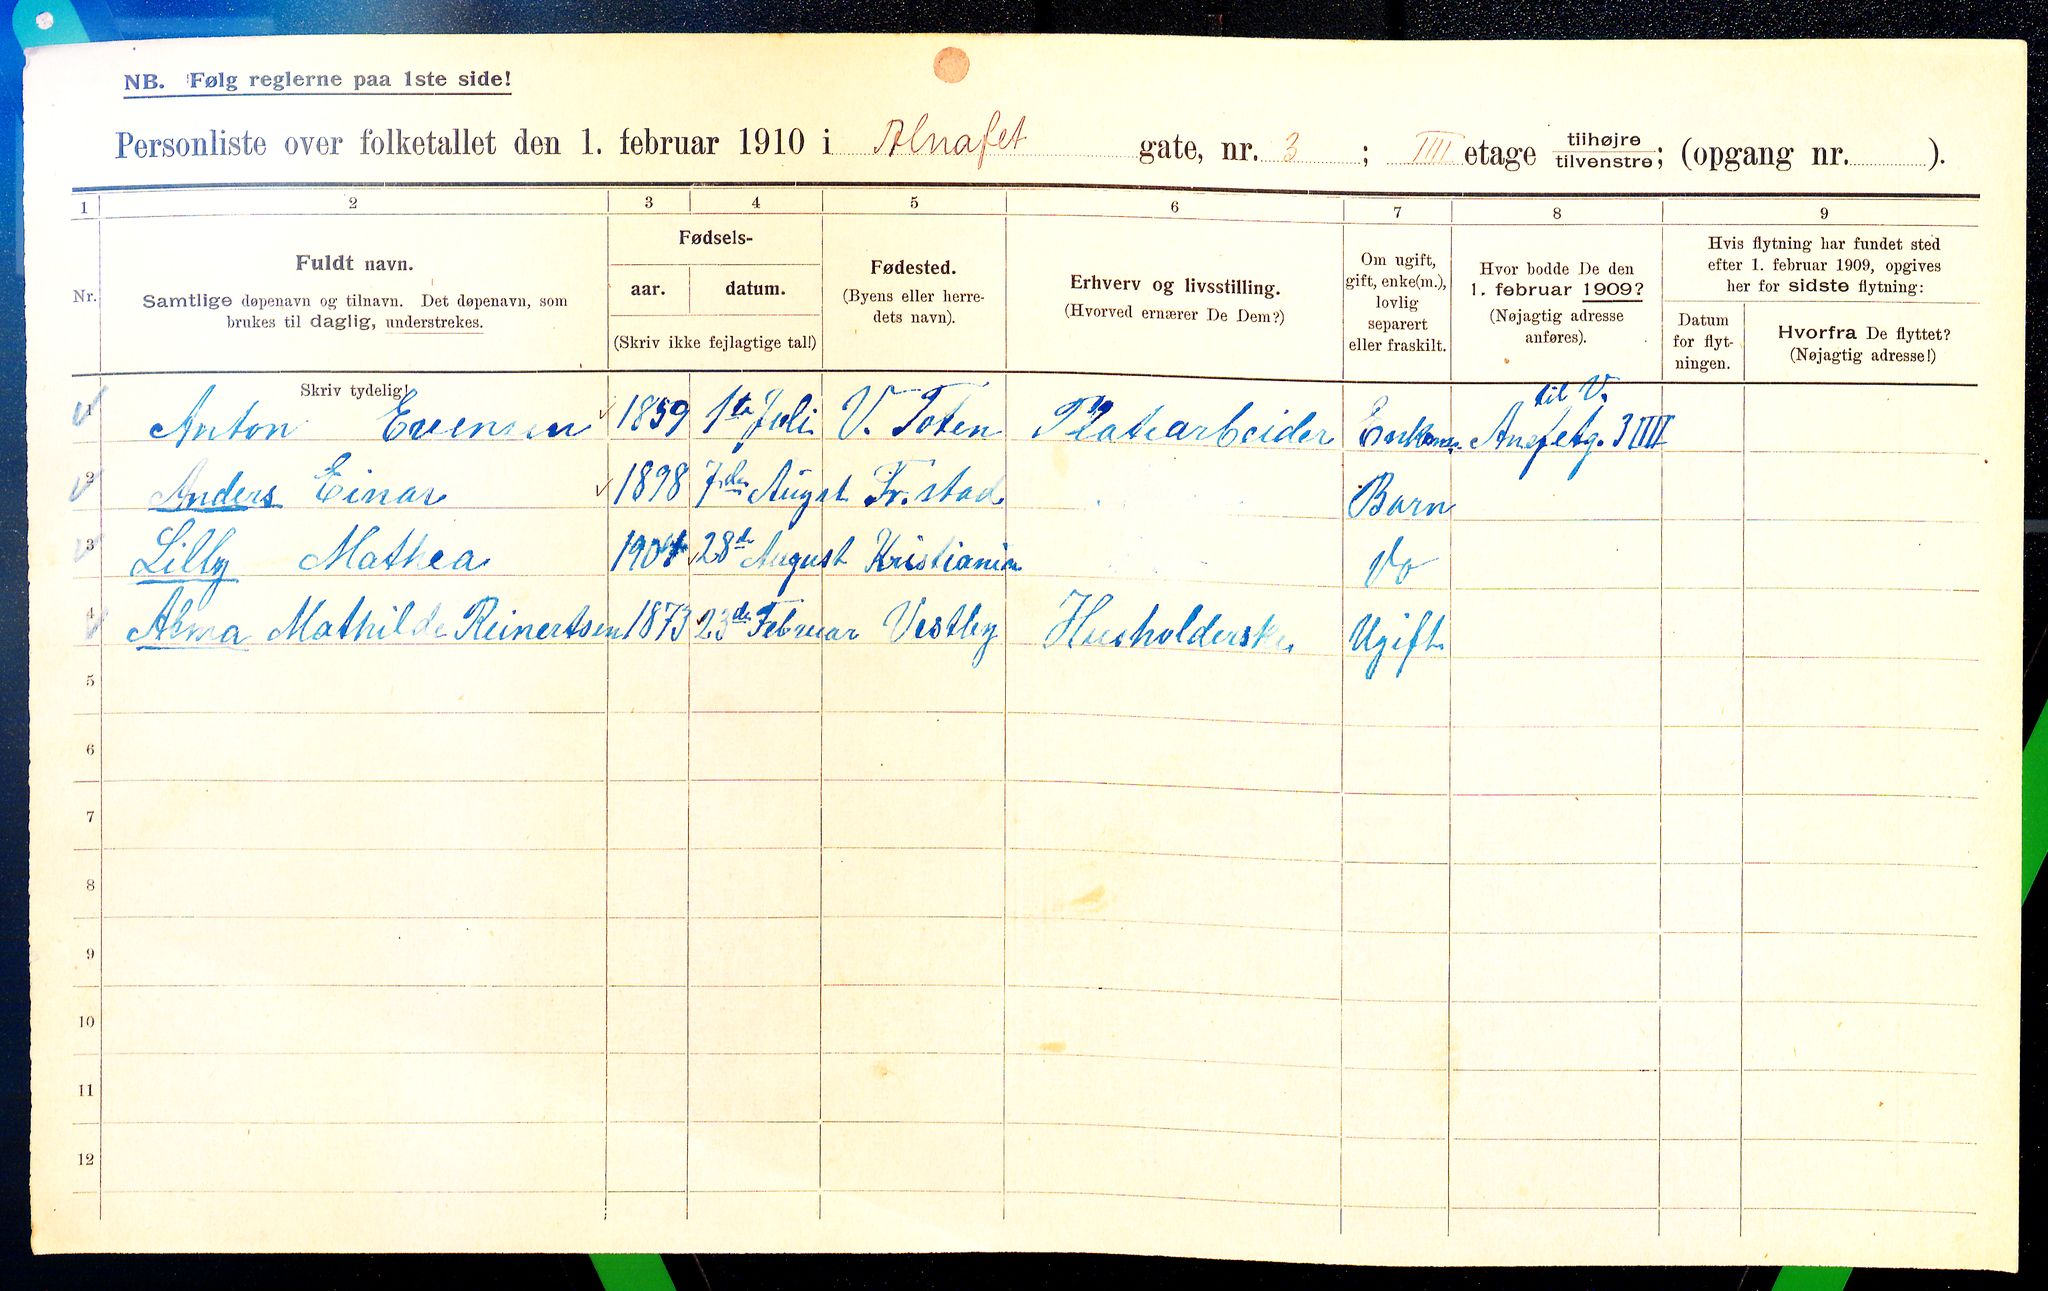 NB. Følg reglerne paa 1ste side!
Personliste over folketallet den 1. februar 1910 i Alnafet gate, nr. 3 ; IIII etage tilhøjre tilvenstre; (opgang nr. ).
1 2 3 4 5 6 7 8 9
Nr.
Fuldt navn.
Samtlige døpenavn og tilnavn. Det døpenavn, som
brukes til daglig, understrekes.
Skriv tydelig!
Fødsels-
aar. datum.
(Skriv ikke fejlagtige tal!)
Fødested.
(Byens eller herre-
dets navn).
Erhverv og livsstilling.
(Hvorved ernærer De Dem?)
Om ugift,
gift, enke(m.),
lovlig
separert
eller fraskilt.
Hvor bodde De den
1. februar 1909?
(Nøjagtig adresse
anføres).
Hvis flytning har fundet sted
efter 1. februar 1909, opgives
her for sidste flytning:
Datum
for flyt-
ningen.
Hvorfra De flyttet?
(Nøjagtig adresse!)
til V.
1 Anton Evensen 1859 1ste Juli V. Toten Platearbeider Enkem. 3 IIII
2 Anders Einar 1898 7de Augst Fr.stad Barn
3 Lilly Mathea 28de August Kristiania Do
4 Alma Mathilde Reinertsen 1873 23de Februar Vestby Husholderske Ugift
5
6
7
8
9
10
11
12